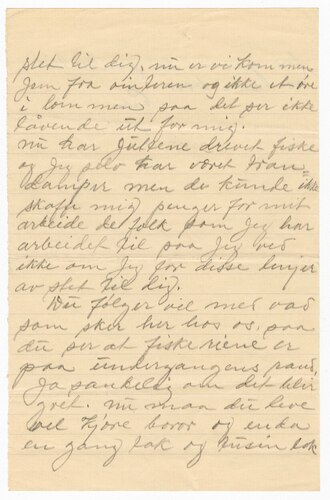 slet til dig. nu er vi kommen
jem fra vinteren og ikke et øre
i lommen saa det ser ikke
lovende ut for mig.
nu har guttene drevet fiske
og jeg selv har været tran
damper men de kunde ikke
skaffe mig penger for mit
arbeide de folk som jeg har
arbeidet til saa jeg ved
ikke om jeg for disse linjer
av slet til dig.
Du følger vel med vad
som sker her hos os, saa
du ser at fiskeriene er
paa undergangens rand,
Ja sandelig om det blir
gret. nu maa du leve
vel kjære bror og enda
en gang tak og tusin tak